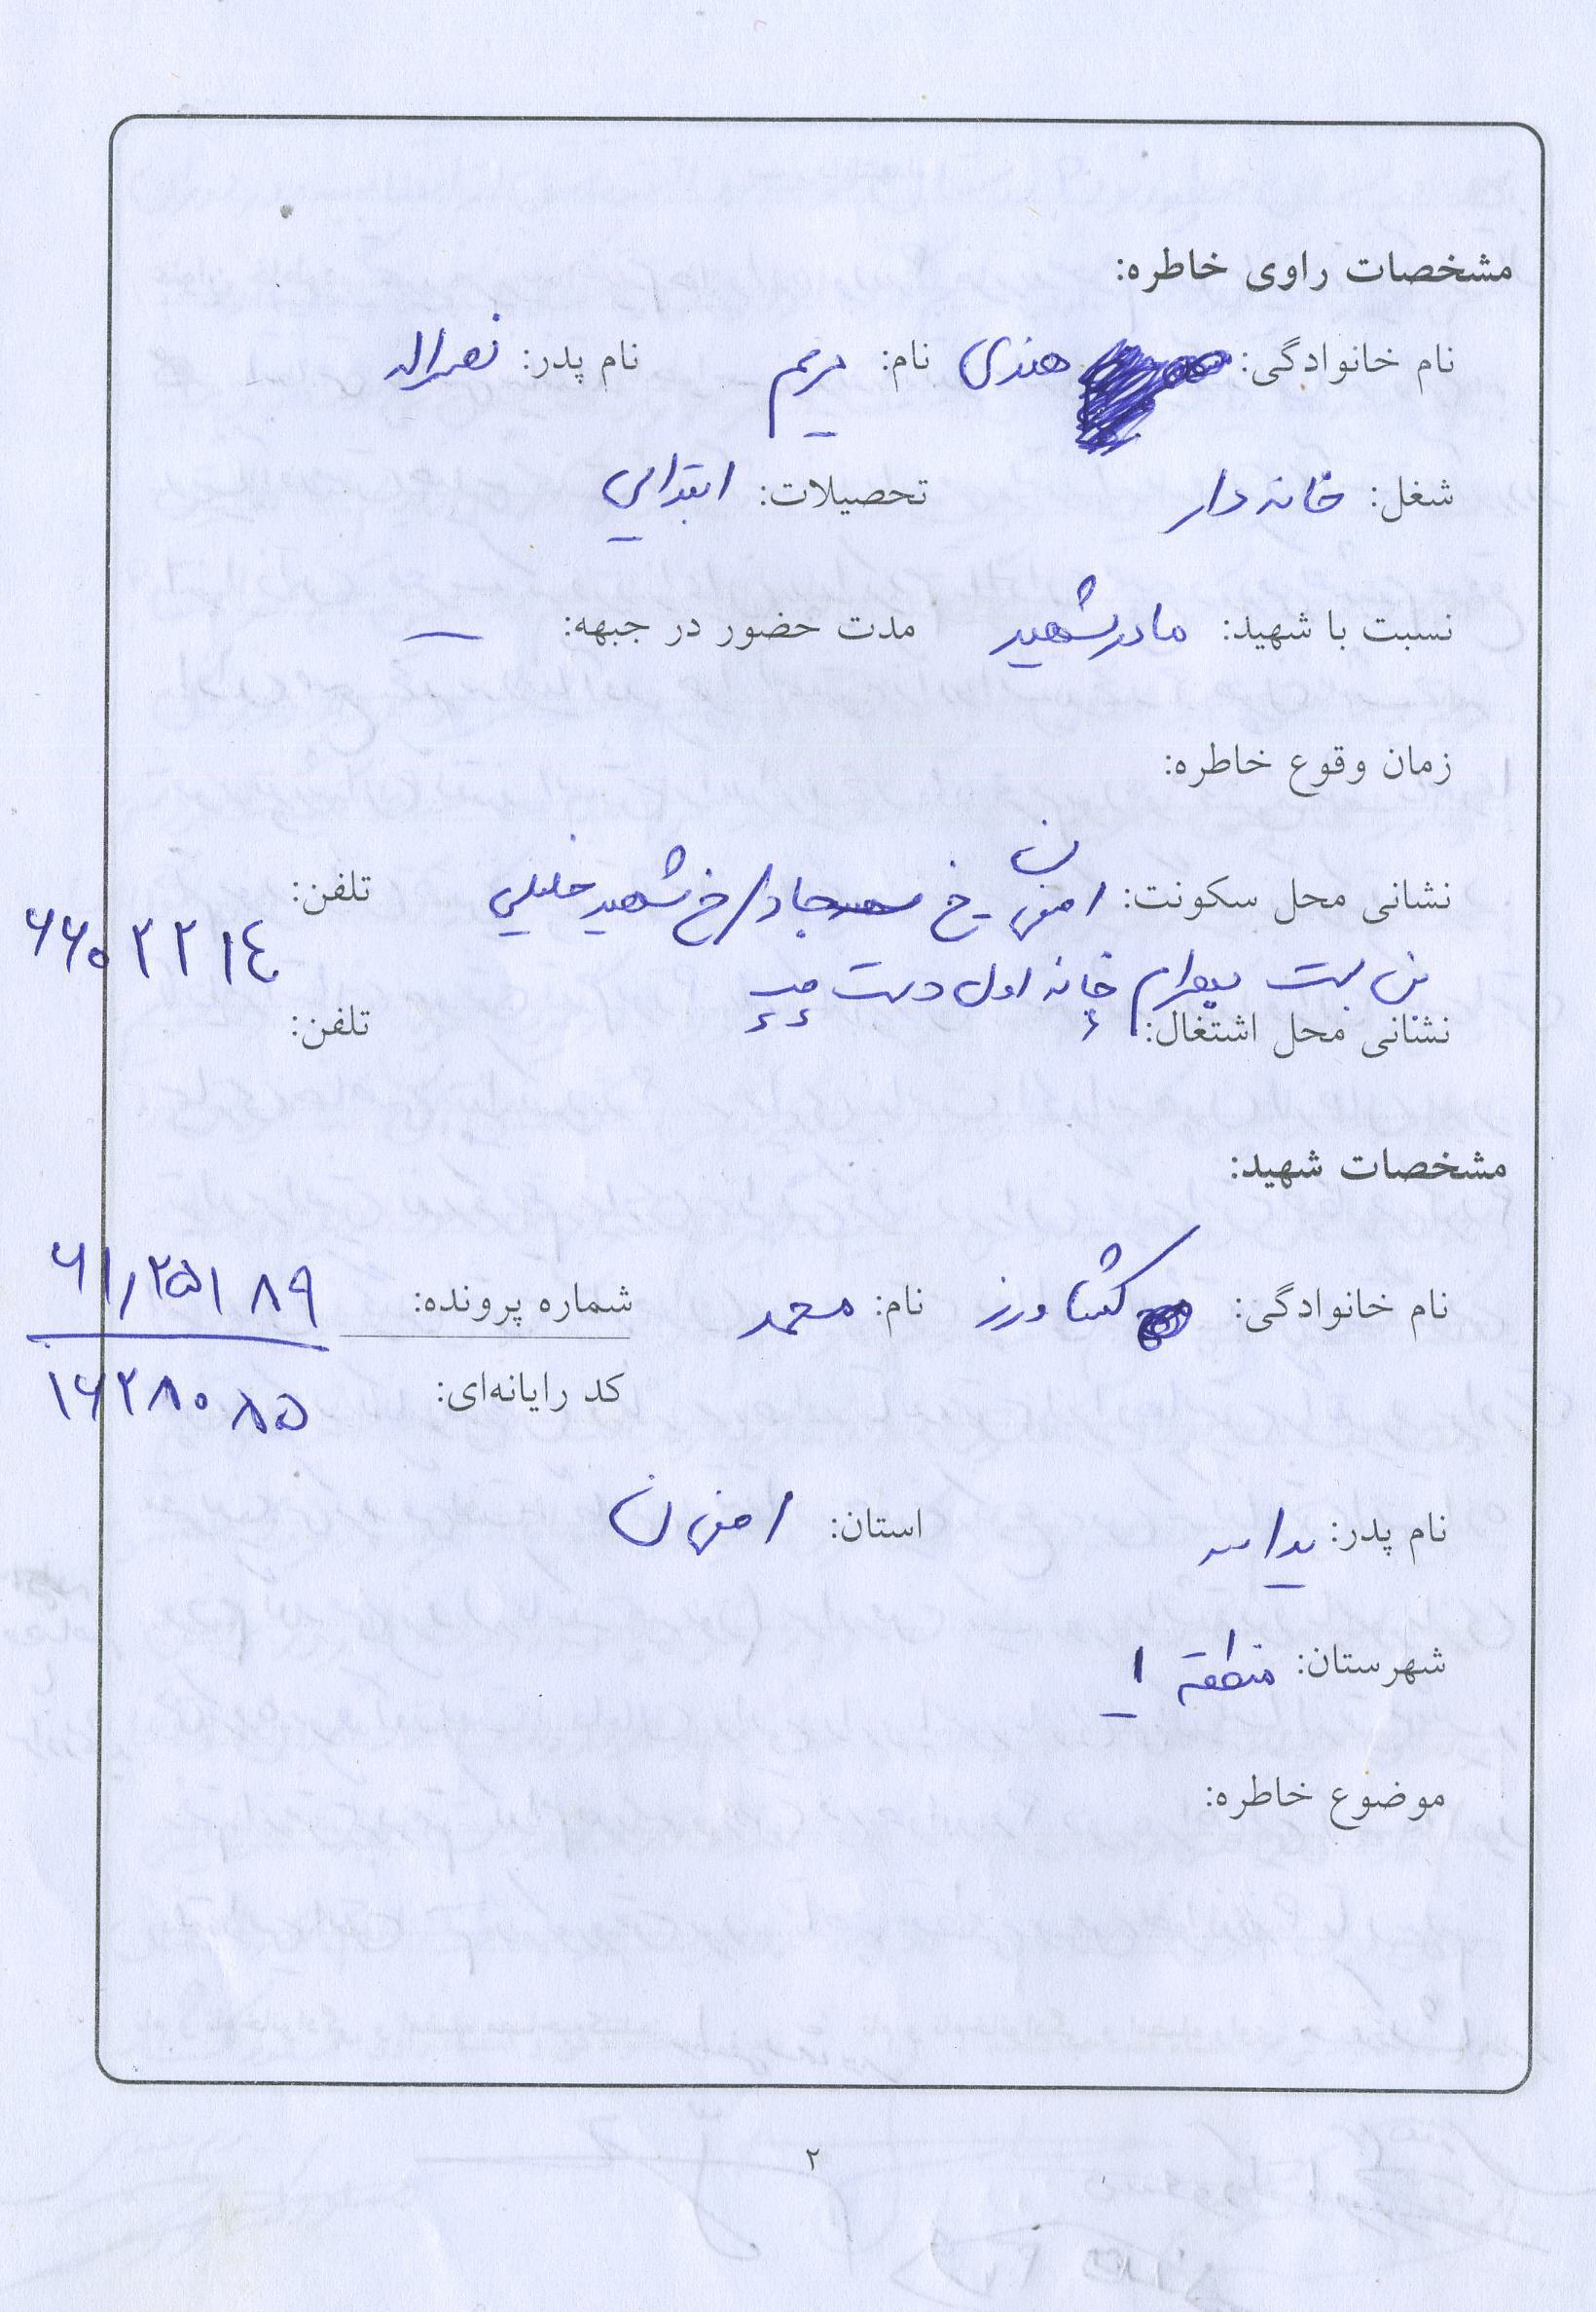 مشخصات راوی خاطره:
نام خانوادگی: هندی نام: مریم نام پدر: نصراله
شغل: خانه دار تحصیلات: ابتدایی
نسبت با شهید: مادر شهید مدت حضور در جبهه: —
زمان وقوع خاطره:
نشانی محل سکونت: اصفهان خ سجاد / خ شهید خلیلی تلفن: ۶۶۰۲۲۱۴
بن بست خانه اول دست
نشانی محل اشتغال: تلفن:
مشخصات شهید:
نام خانوادگی: کشاورز نام: محمد شماره پرونده: ۶۱/۲۵۱۸۹
کد رایانه‌ای: ۱۶۲۸۰۸۵
نام پدر: یداله استان: اصفهان
شهرستان: منطقه ۱
موضوع خاطره:
۲